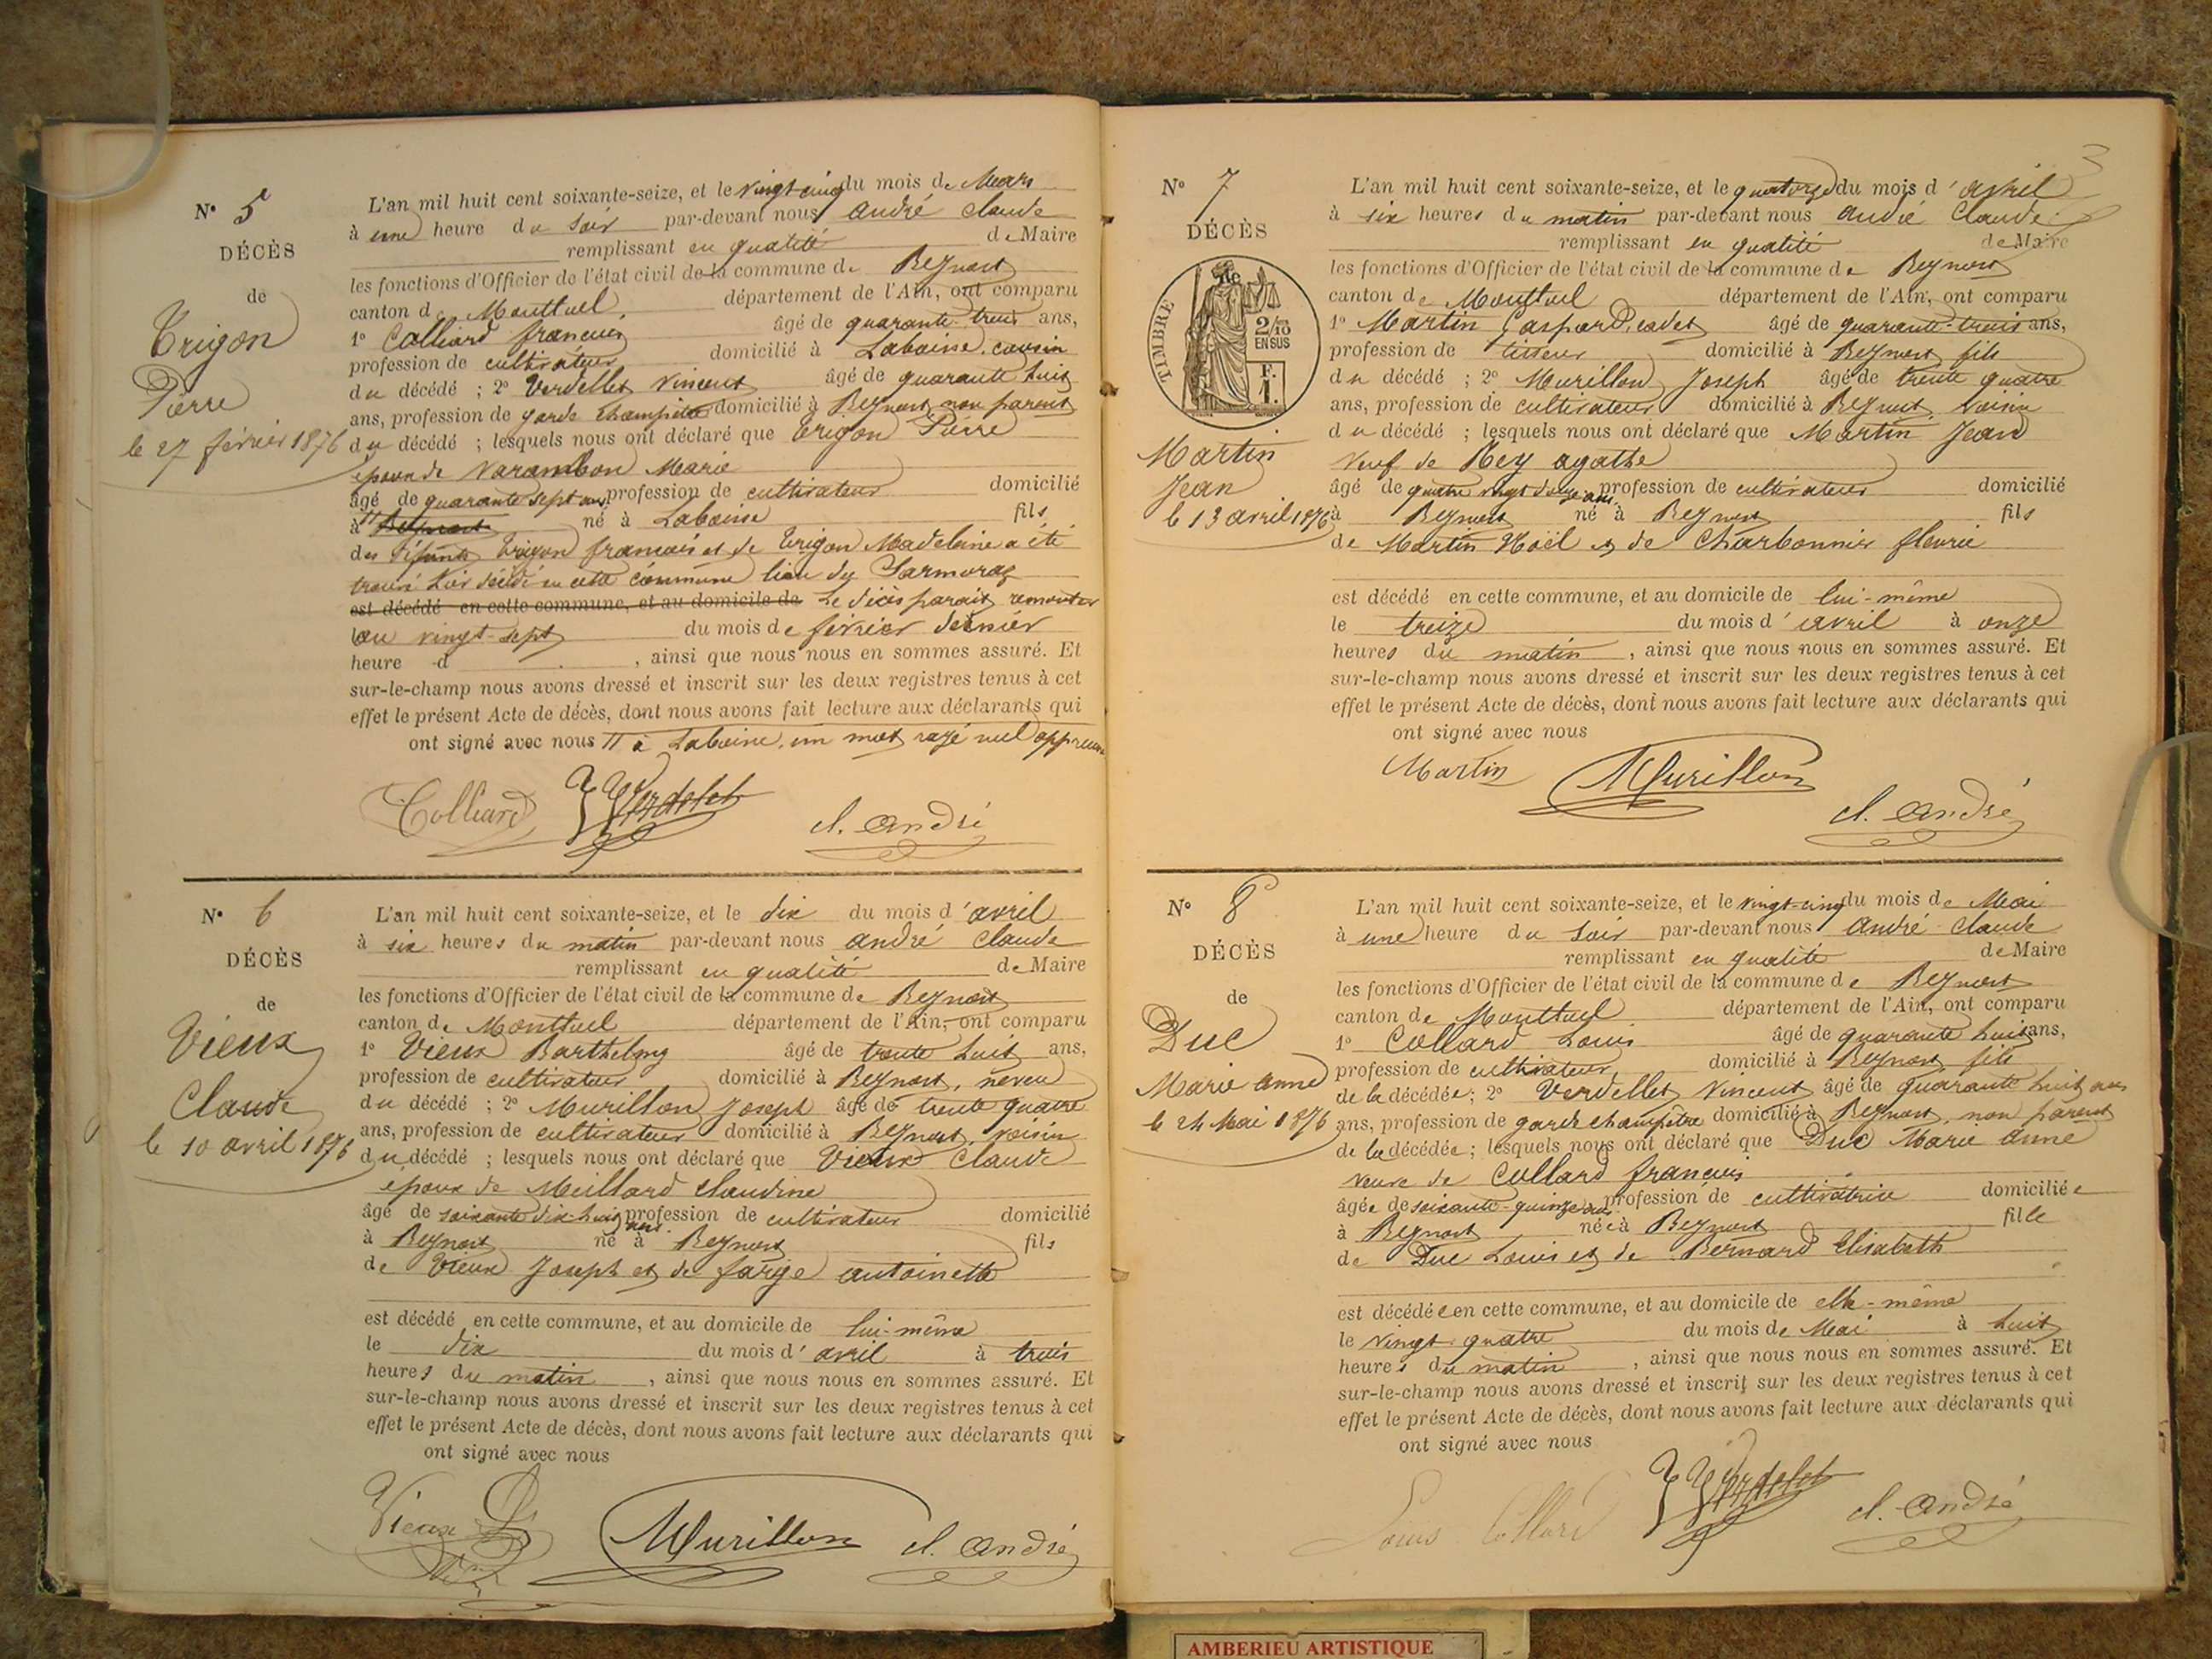 N° 5
DÉCÈS
de
Trigon
Pierre
le 27 février 1876
L'an mil huit cent soixante-seize, et le vingt cinq du mois de Mars
à une heure du soir par-devant nous André Claude
remplissant en qualité de Maire
les fonctions d'Officier de l'état civil de la commune de Beynost
canton de Montluel département de l'Ain, ont comparu
1° Colliard francois âgé de quarante-trois ans,
profession de cultivateur domicilié à Laboisse, cousin
du décédé ; 2° Verdellet Vincent âgé de quarante huit
ans, profession de garde champêtre domicilié à Beynost, non parent
du décédé ; lesquels nous ont déclaré que Trigon Pierre
époux de Varambon Marie
âgé de quarante sept ans profession de cultivateur domicilié
à // Beynost né à Laboisse fils
des défunts Trigon francois et de Trigon Madeleine a été
trouvé hier décédé en cette commune lieu dit Sarmoraz
est décédé en cette commune, et au domicile de Le décès parait remonter
au vingt-sept du mois de février dernier
heure d , ainsi que nous nous en sommes assuré. Et
sur-le-champ nous avons dressé et inscrit sur les deux registres tenus à cet
effet le présent Acte de décès, dont nous avons fait lecture aux déclarants qui
ont signé avec nous // à Laboisse, un mot rayé nul approuvé
Colliard Verdelet cl. André
N° 6
DÉCÈS
de
Vieux
Claude
le 10 avril 1876
L'an mil huit cent soixante-seize, et le dix du mois d'avril
à six heures du matin par-devant nous André Claude
remplissant en qualité de Maire
les fonctions d'Officier de l'état civil de la commune de Beynost
canton de Montluel département de l'Ain, ont comparu
1° Vieux Barthelmy âgé de trente huit ans,
profession de cultivateur domicilié à Beynost, neveu
du décédé ; 2° Murillon Joseph âgé de trente quatre
ans, profession de cultivateur domicilié à Beynost, voisin
du décédé ; lesquels nous ont déclaré que Vieux Claude
époux de Meillard Claudine
âgé de soixante dix-huit ans profession de cultivateur domicilié
à Beynost né à Beynost fils
de Vieux Joseph et de farge antoinette
est décédé en cette commune, et au domicile de lui-même
le dix du mois d'avril à trois
heures du matin , ainsi que nous nous en sommes assuré. Et
sur-le-champ nous avons dressé et inscrit sur les deux registres tenus à cet
effet le présent Acte de décès, dont nous avons fait lecture aux déclarants qui
ont signé avec nous
Vieux Murillon cl. André
3
N° 7
DÉCÈS
de
TIMBRE
2/10
EN SUS
F.
1.
Martin
Jean
le 13 avril 1876
L'an mil huit cent soixante-seize, et le quatorze du mois d'avril
à six heures du matin par-devant nous André Claude
remplissant en qualité de Maire
les fonctions d'Officier de l'état civil de la commune de Beynost
canton de Montluel département de l'Ain, ont comparu
1° Martin Gaspard, cadet âgé de quarante-trois ans,
profession de tisseur domicilié à Beynost, fils
du décédé ; 2° Murillon Joseph âgé de trente quatre
ans, profession de cultivateur domicilié à Beynost, voisin
du décédé ; lesquels nous ont déclaré que Martin Jean
veuf de Rey agathe
âgé de quatre vingt douze ans profession de cultivateur domicilié
à Beynost né à Beynost fils
de Martin Noël et de Charbonnier fleurie
est décédé en cette commune, et au domicile de lui-même
le treize du mois d'avril à onze
heures du matin , ainsi que nous nous en sommes assuré. Et
sur-le-champ nous avons dressé et inscrit sur les deux registres tenus à cet
effet le présent Acte de décès, dont nous avons fait lecture aux déclarants qui
ont signé avec nous
Martin Murillon cl. André
N° 8
DÉCÈS
de
Duc
Marie anne
le 24 Mai 1876
L'an mil huit cent soixante-seize, et le vingt-cinq du mois de Mai
à une heure du soir par-devant nous André Claude
remplissant en qualité de Maire
les fonctions d'Officier de l'état civil de la commune de Beynost
canton de Montluel département de l'Ain, ont comparu
1° Collard Louis âgé de quarante huit ans,
profession de cultivateur domicilié à Beynost, fils
de la décédée ; 2° Verdellet Vincent âgé de quarante huit ans
ans, profession de garde champêtre domicilié à Beynost, non parent
de la décédée ; lesquels nous ont déclaré que Duc Marie anne
veuve de Collard francois
âgée de soixante-quinze ans profession de cultivatrice domiciliée
à Beynost née à Beynost fille
de Duc Louis et de Bernard Elisabeth
est décédée en cette commune, et au domicile de elle-même
le vingt-quatre du mois de Mai à huit
heures du matin , ainsi que nous nous en sommes assuré. Et
sur-le-champ nous avons dressé et inscrit sur les deux registres tenus à cet
effet le présent Acte de décès, dont nous avons fait lecture aux déclarants qui
ont signé avec nous
Louis Collard Verdelet cl. André
AMBERIEU ARTISTIQUE